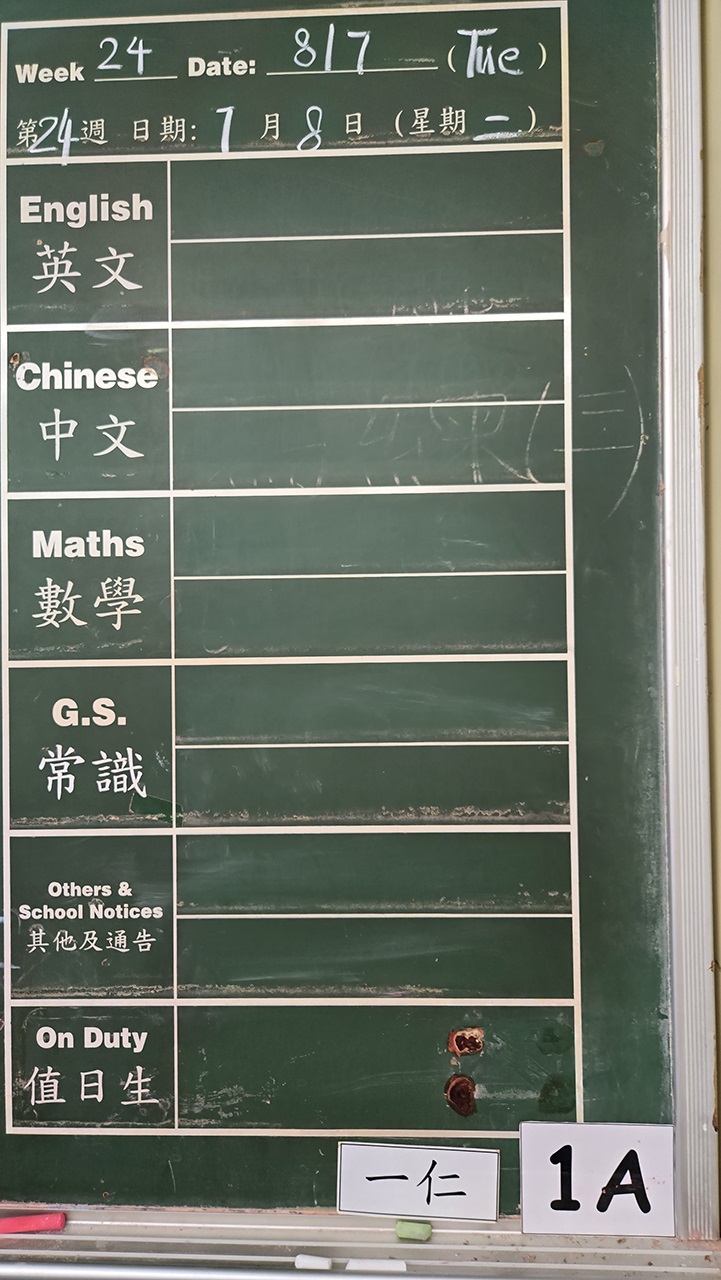 Week 24 Date: 8/7 (Tue)
第24週 日期: 7月8日 (星期二)
English
英文
Chinese
中文
Maths
數學
G.S.
常識
Others &
School Notices
其他及通告
On Duty
值日生
一仁
1A